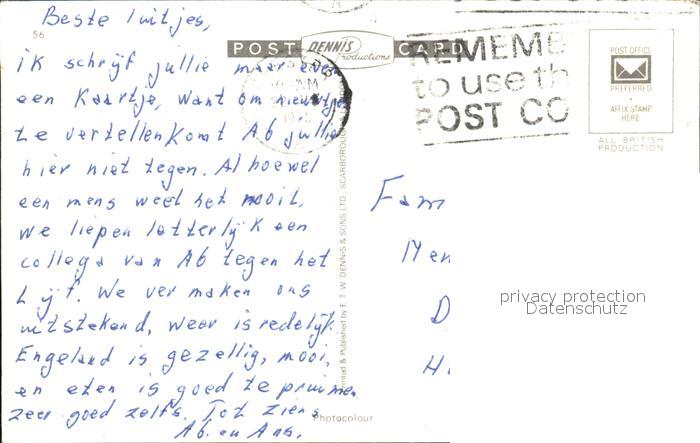 Beste luitjes,
56
POST DENNIS Productions CARD
REMEMB
to use th
POST CO
POST OFFICE
PREFERRED
AFFIX STAMP
HERE
ALL BRITISH
PRODUCTION
ik schrijf jullie maar even
een Kaartje, want om nieuwtjes
te vertellen Komt Ab jullie
hier niet tegen. Alhoewel
een mens weet het nooit,
we liepen letterlijk een
collega van Ab tegen het
Lijf. We vermaken ons
uitstekend, weer is redelijk
Engeland is gezellig, mooi,
en eten is goed te pruimen
zeer goed zelfs. Tot ziens
Ab. en Ans.
Photocolour
Printed & Published by E. T. W. DENNIS & SONS LTD., SCARBOROUGH
Fam
Men
D
H.
privacy protection
Datenschutz